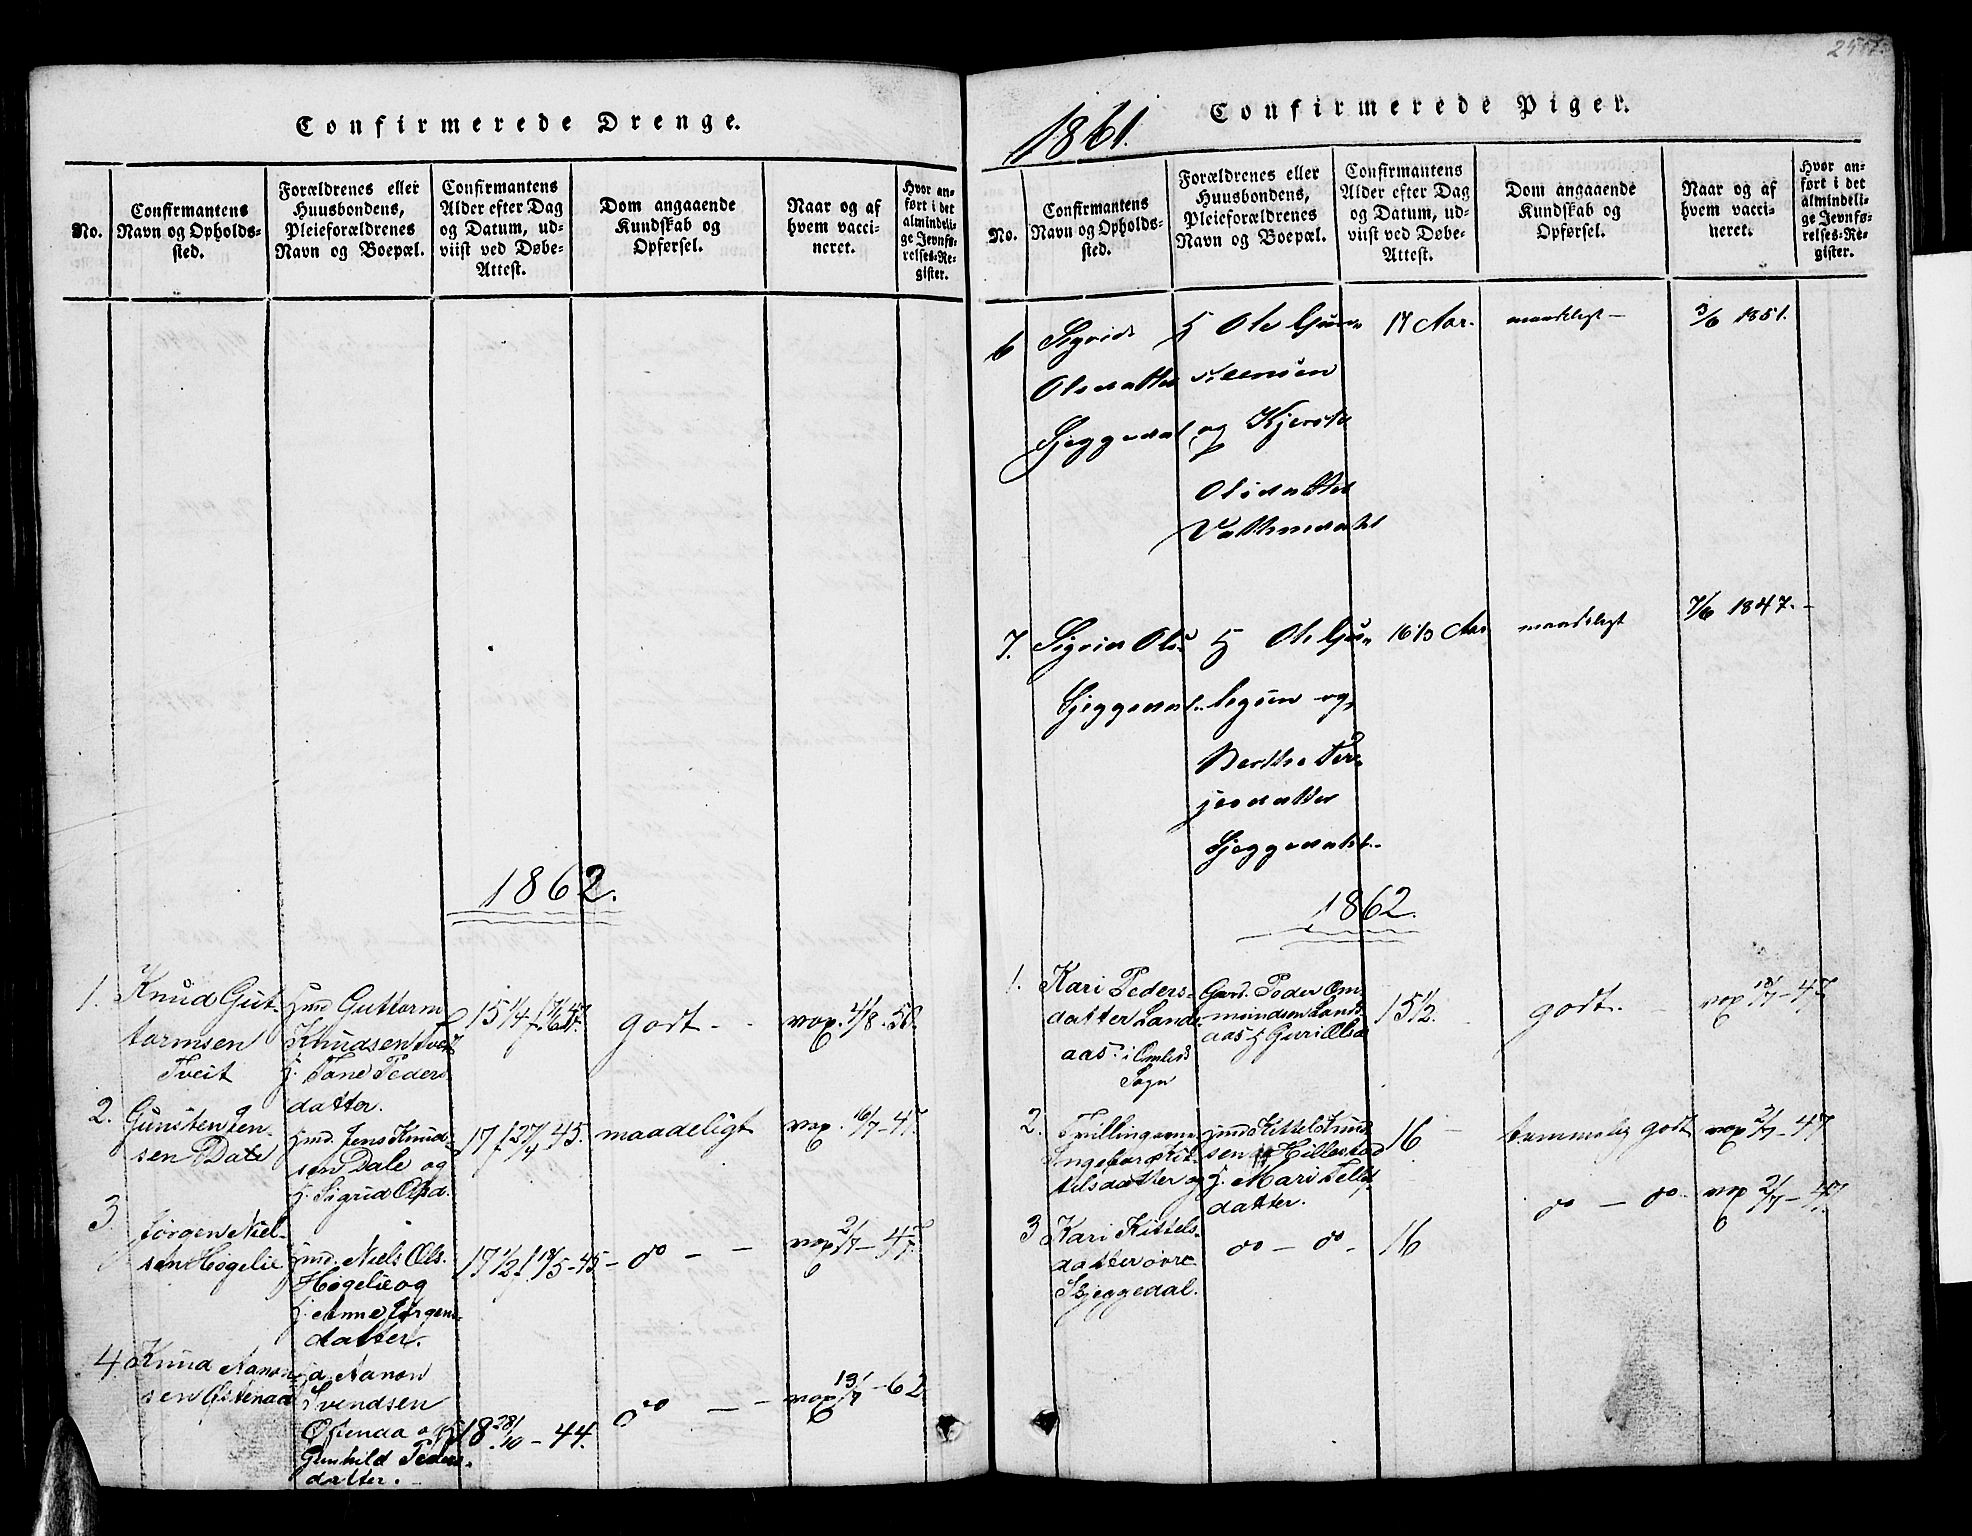 Confirmerede Drenge.
No.
Confirmantens
Navn og Opholds-
sted.
Forældrenes eller
Huusbondens,
Pleieforældrenes
Navn og Boepæl.
Confirmantens
Alder efter Dag
og Datum, ud-
viist ved Døbe-
Attest.
Dom angaaende
Kundskab og
Opførsel.
Naar og af
hvem vacci-
neret.
Hvor an-
ført i det
almindeli-
ge Jevnfø-
relses-Re-
gister.
1862.
1. Knud Gut-
tormsen
Tveit
Guttorm
Knudsen Tveit
Tone Peders
datter.
15 1/4
godt -
vax.
2. Gunsten Jen-
sen Dale
Jens Knud-
sen Dale og
Sigrid Olsd.
17 f 27/4 45.
maadeligt
vax. 16/7 - 47.
3
Jørgen Niel-
sen Høgelie
Niels Ols.
Høgelie og
Anne Jørgens-
datter.
17 1/2 f
do - -
vax 2/7 - 47.
4. Knud Aanon-
sen Østenaa
Aanon
Svendsen
Østenaa og
Gunhild Peders-
datter. -
18 28/10 - 44.
do - -
vax 13/7 - 62
1861.
Confirmerede Piger.
No.
Confirmantens
Navn og Opholds-
sted.
Forældrenes eller
Huusbondens,
Pleieforældrenes
Navn og Boepæl.
Confirmantens
Alder efter Dag
og Datum, ud-
viist ved Døbe-
Attest.
Dom angaaende
Kundskab og
Opførsel.
Naar og af
hvem vacci-
neret.
Hvor an-
ført i det
almindeli-
ge Jevnfø-
relses-Re-
gister.
6 Sigrid
Olsdatter
Sjeggedal
Ole Gun-
steensen
og Kjersti
Olsdatter
17 Aar.
maadeligt -
3/6 1851.
7. Sigrid Ols-
Sjeggedal.
Ole Gun-
legsen og
Berthe Ter-
jesdatter
Sjeggedahl.
Aar
maadeligt
7/6 1847. -
1862.
1. Kari Peders-
datter Lands-
aas i Omlids
Sogn
Gard. Peder Om-
mundsen Lands-
aas Guri Olsd
15 1/2.
godt. -
vax 18/7 - 47.
2. Tvillingerne
Ingeborg Kit-
tilsdatter og
Kittel Knud
sen Hillestad
Mari Tellefs
datter.
16 -
temmelig godt
vax 2/7 - 47
3 Kari Kittels-
datter øvre
Skjeggedal.
do - do -
16
do - do -
vax 2/7 - 47.